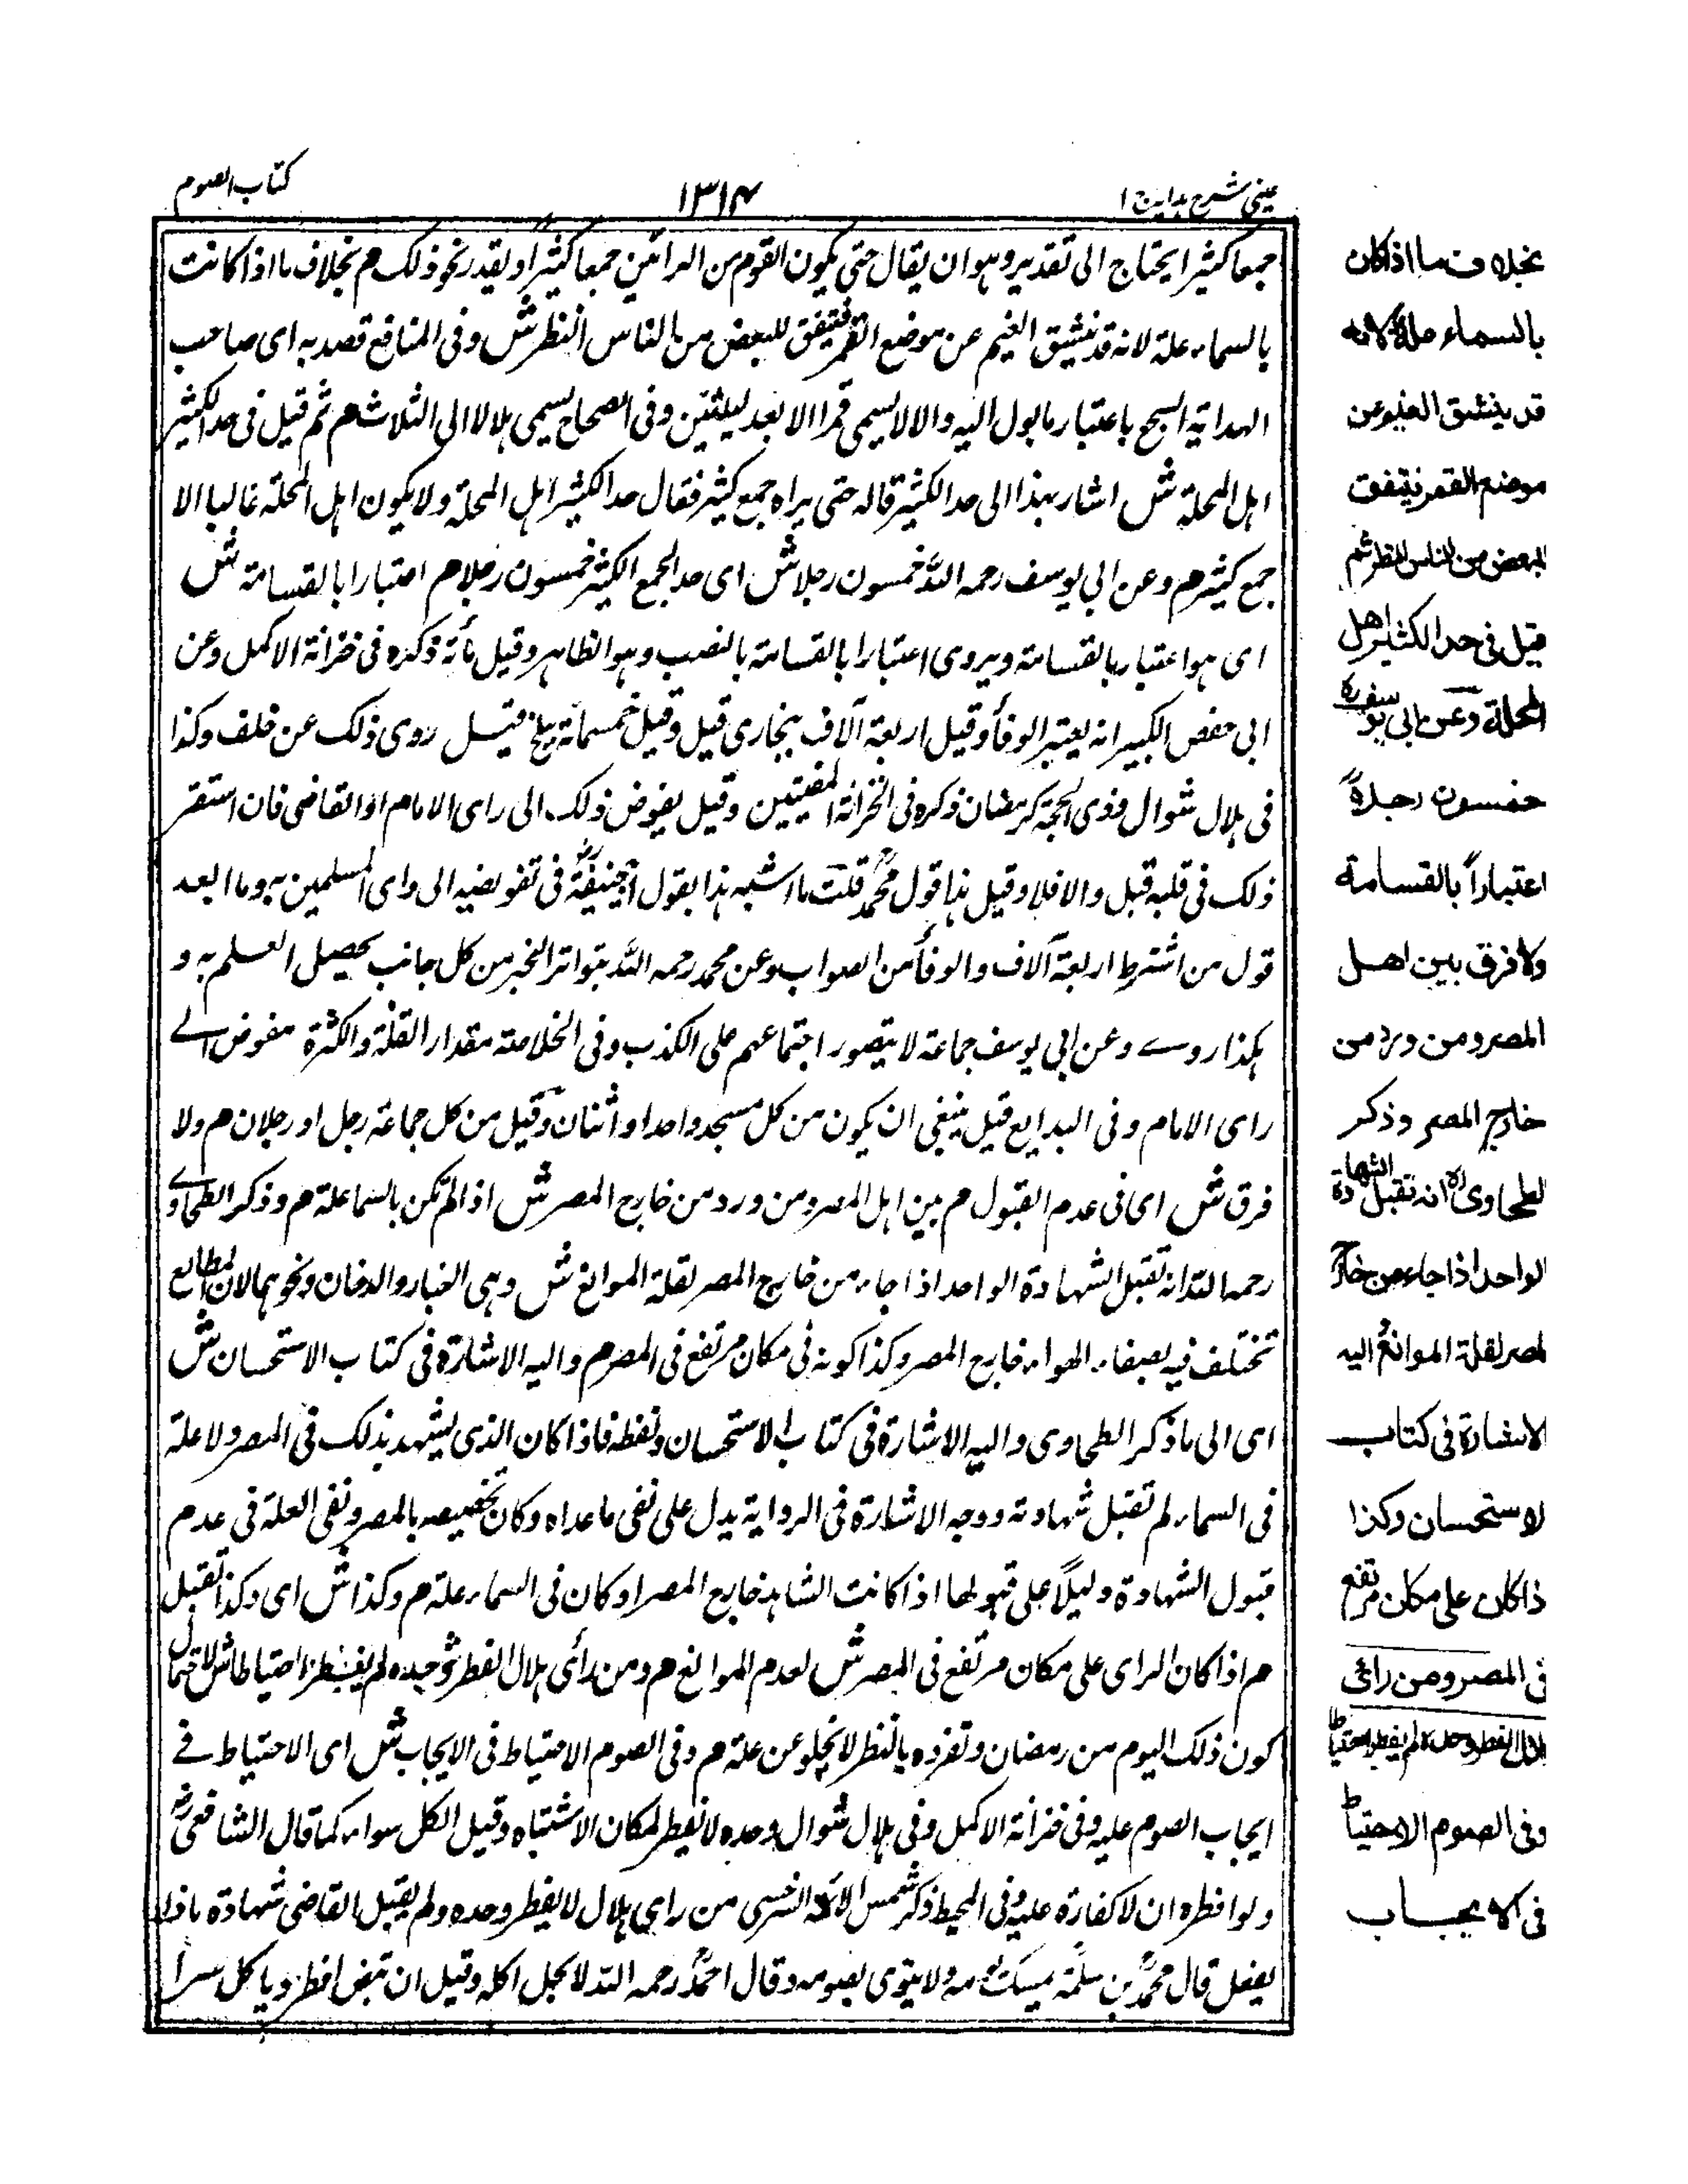 عينى شرح هداية ج ١
١٣١٤
كتاب الصوم
جمعا كثيرا يحتاج الى تقدير وهو ان يقال حتى يكون القوم من الرائين جمعا كثيرا او يقدر نحو ذلك م بخلاف ما اذا كانت
بالسماء علة لانه قد ينشق الغيم عن موضع القمر فيتفق للبعض من الناس النظر ش وفى المنافع قصد به اى صاحب
الهداية باعتبار ما يول اليه والا لا يسمى قمرا الا بعد ليلتين وفى الصحاح يسمى هلالا الى الثلاث م ثم قيل فى حد الكثير
اهل المحلة ش اشار بهذا الى حد الكثير قاله حتى يراه جمع كثير فقال حد الكثير اهل المحلة ولا يكون اهل المحلة غالبا الا
جمع كثير م وعن ابي يوسف رحمه الله خمسون رجلا ش اى حد الجمع الكثير خمسون رجلا م اعتبارا بالقسامة ش
اى هو اعتبار بالقسامة ويروى اعتبارا بالقسامة بالنصب وهو الظاهر وقيل مأئة ذكره فى خزانة الاكمل وعن
ابى حفص الكبير انه يعتبر الوفا وقيل اربعة آلاف ببخارى قيل وقيل خمسمائة ببلخ قيل روى ذلك عن خلف وكذا
فى هلال شوال وذى الحجة كرمضان ذكره فى الخزانة المفيتين وقيل يفوض ذلك الى راى الامام او القاضى فان استقر
ذلك فى قلبه قبل والا فلا وقيل هذا قول محمد قلت ما اشبه هذا بقول ابى حنيفة فى تفويضه الى راى المسلمين به وما ابعد
قول من اشترط اربعة آلاف والوفا من الصواب وعن محمد رحمه الله بتواتر الخبر من كل جانب يحصل العلم به و
هكذا روے وعن ابى يوسف جماعة لا يتصور اجتماعهم على الكذب وفى الخلاصة مقدار القلة والكثرة مفوض الے
راى الامام وفى البدايع قيل ينبغى ان يكون من كل مسجد واحد او اثنان وقيل من كل جماعة رجل او رجلان م ولا
فرق ش اى فى عدم القبول م بين اهل المصر ومن ورد من خارج المصر ش اذا لم تكن بالسما علة م وذكر الطحاوے
رحمه الله انه تقبل الشهادة الواحد اذا جاء من خارج المصر لقلة الموانع ش وهى الغبار والدخان ونحوهما لان المطالع
تختلف فيه بصفاء الهواء خارج المصر وكذا كونه فى مكان مرتفع فى المصر م واليه الاشارة فى كتاب الاستحسان ش
اى الى ما ذكر الطحاوى واليه الاشارة فى كتاب الاستحسان ولفظه فاذا كان الذى يشهد بذلك فى المصر ولا علة
فى السماء لم تقبل شهادته ووجه الاشارة فى الرواية يدل على نفى ما عداه وكان تخصيصه بالمصر ونفى العلة فى عدم
قبول الشهادة دليلا على قبولها اذا كانت الشاهد خارج المصر او كان فى السماء علة م وكذا ش اى وكذا تقبل
م اذا كان الراى على مكان مرتفع فى المصر ش لعدم الموانع م ومن رأى هلال الفطر وحده لم يفطر احتياطا ش لاحتمال
كون ذلك اليوم من رمضان وتفرده بالنظر لا يخلو عن علة م وفى الصوم الاحتياط فى الايجاب ش اى الاحتياط فے
ايجاب الصوم عليه وفى خزانة الاكمل وفى هلال شوال وحده لا يفطر لمكان الاشتباه وقيل الكل سواء كما قال الشافعى
ولو افطره ان لا كفارة عليه وفى المحيط ذكر شمس الائمة السرخسى من راى هلال لا يفطر وحده ولم يقبل القاضى شهادة ماذا
يفعل قال محمد بن سلمة يمسك يومه ولا ينوى بصومه وقال احمد رحمه الله لا يحل اكله وقيل ان تيقن افطر وياكل سرا
بخلاف ما اذا كان
بالسماء علة لانه
قد ينشق الغيم عن
موضع القمر فيتفق
للبعض من الناس النظر ثم
قيل فى حد الكثير اهل
المحلة وعن ابى يوسف ره
خمسون رجلاً
اعتباراً بالقسامة
ولا فرق بين اهل
المصر ومن ورد من
خارج المصر وذكر
لطحاوى ره انه تقبل الشهادة
الواحد اذا جاء من خارج
لمصر لقلة الموانع واليه
لاشارة فى كتاب
لاستحسان وكذا
ذا كان على مكان مرتفع
فى المصر ومن رائ
هلال الفطر وحده لم يفطر احتياطا
وفى الصوم الاحتياط
فى الايجاب